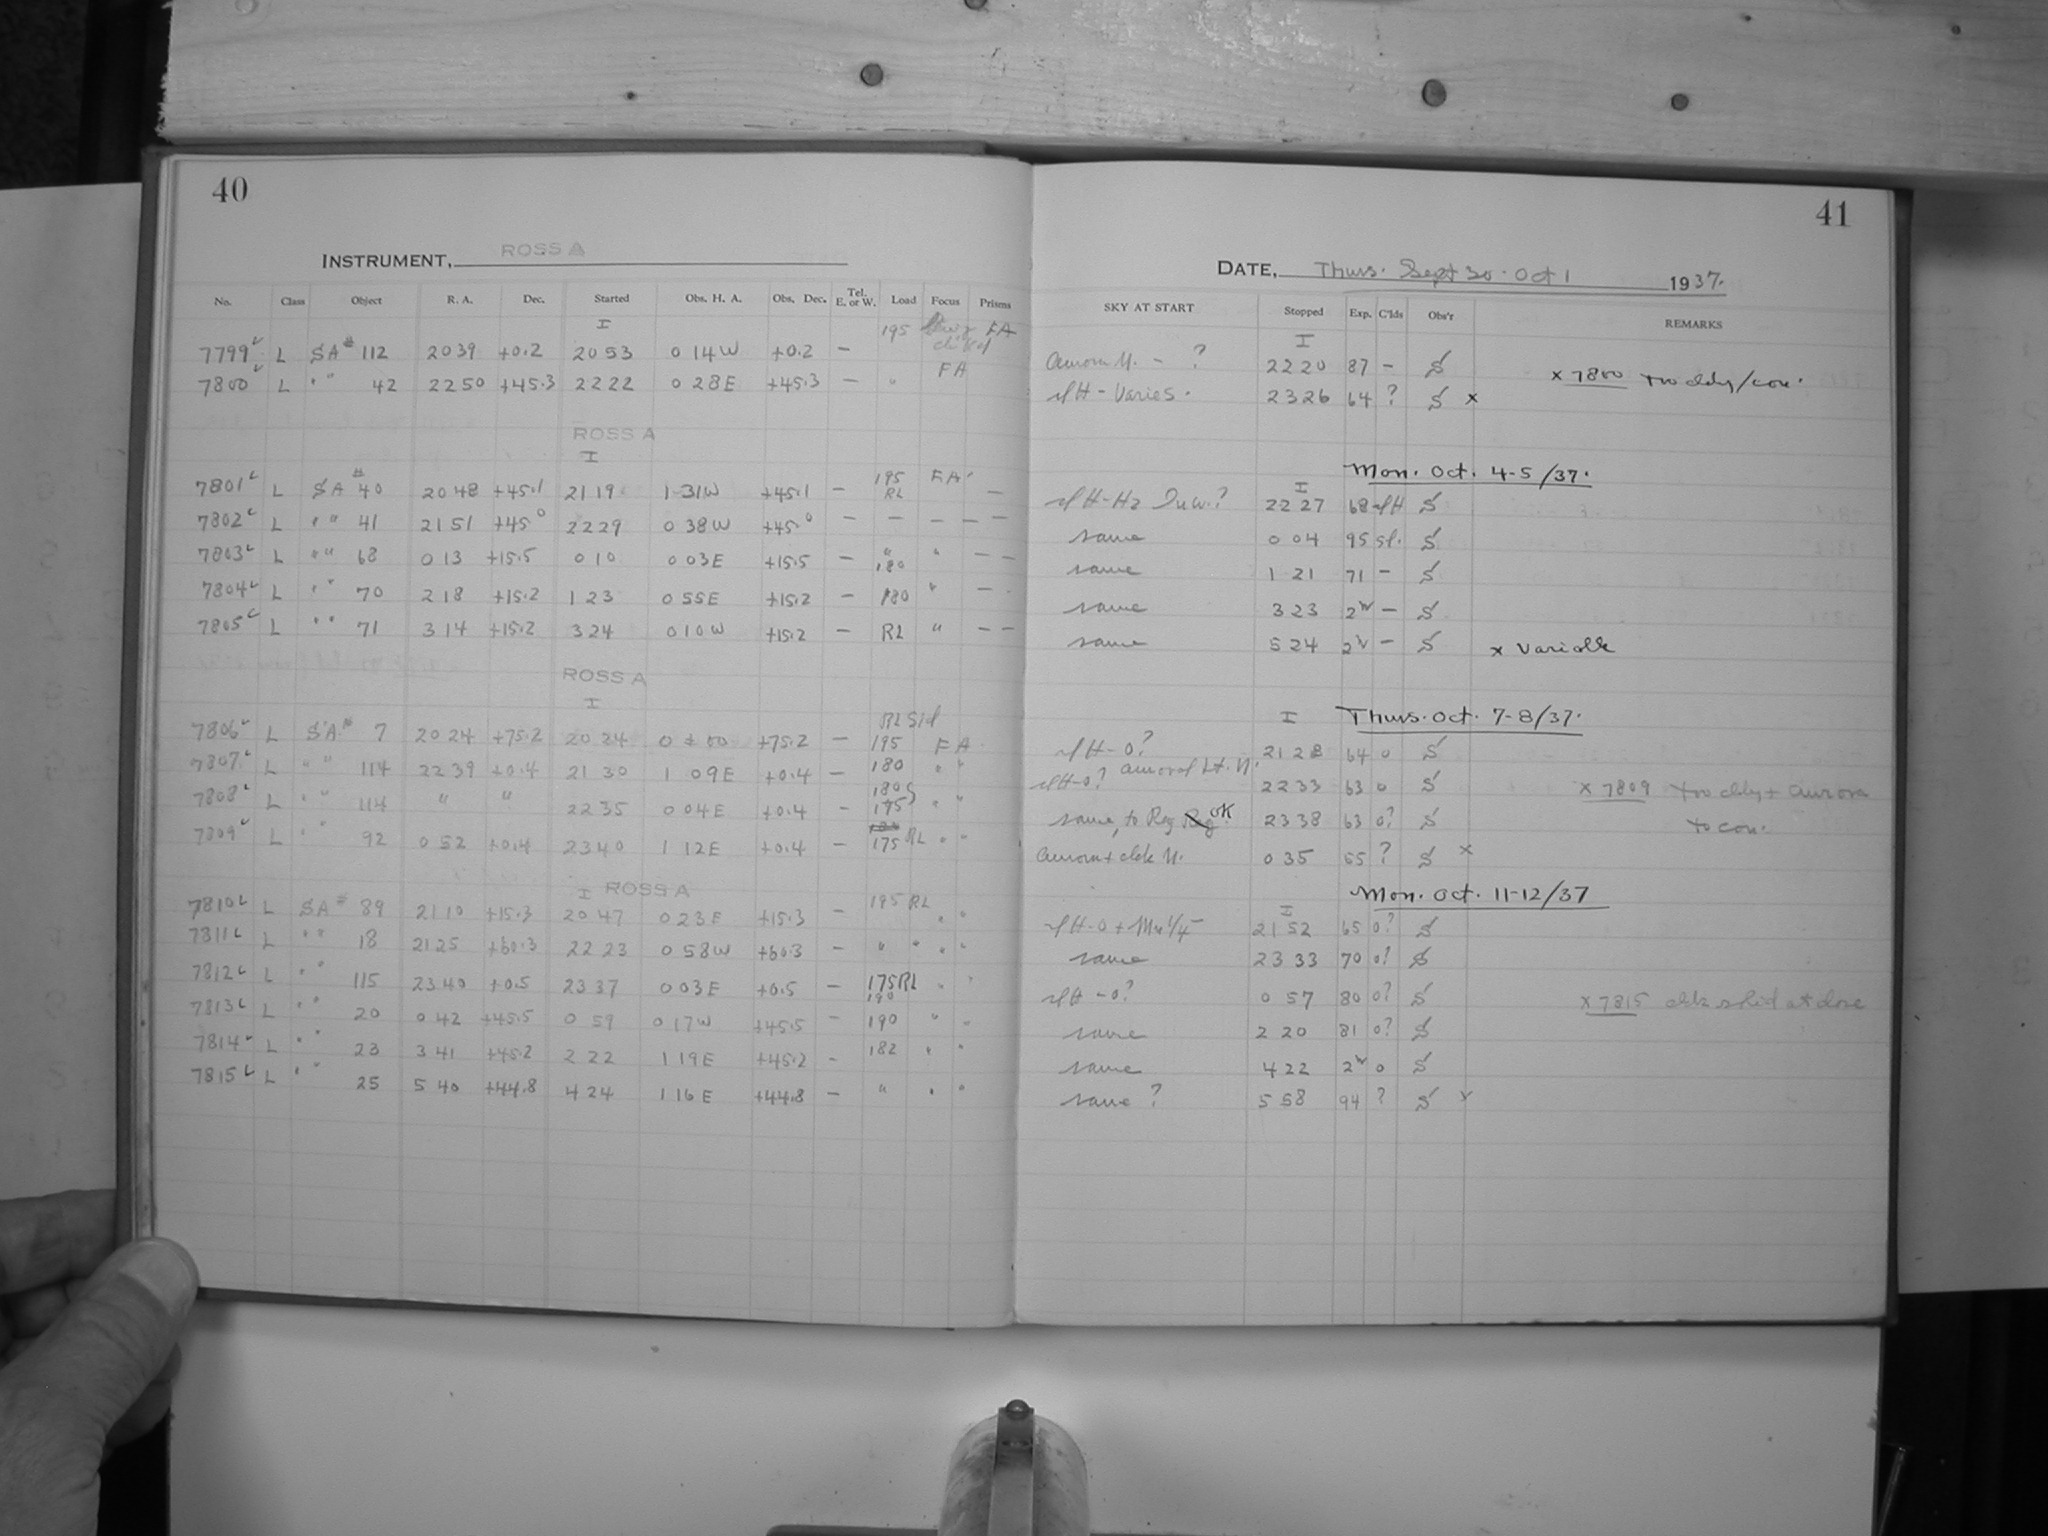 40
INSTRUMENT, ROSS A
No. Class Object R. A. Dec. Started Obs. H. A. Obs. Dec. Tel. E. or W. Load Focus Prisms
I 195 FA
7799 L SA # 112 20 39 +0.2 20 53 0 14 W +0.2 –
FA
7800 L " " 42 22 50 +45.3 22 22 0 28 E +45.3 – "
ROSS A
I
7801 L SA # 40 20 48 +45.1 21 19 1 31 W +45.1 – 195 RL FA –
7802 L " " 41 21 51 +45.0 22 29 0 38 W +45.0 – – – – –
7803 L " " 68 0 13 +15.5 0 10 0 03 E +15.5 – " 180 " – –
7804 L " " 70 2 18 +15.2 1 23 0 55 E +15.2 – 180 " –
7805 L " " 71 3 14 +15.2 3 24 0 10 W +15.2 – RL " – –
ROSS A
I RL Sid
7806 L SA # 7 20 24 +75.2 20 24 0 ± 00 +75.2 – 195 FA
7807 L " " 114 22 39 +0.4 21 30 1 09 E +0.4 – 180 " "
7808 L " " 114 " " 22 35 0 04 E +0.4 – 180 175 " "
7809 L " " 92 0 52 +0.4 23 40 1 12 E +0.4 – 175 RL " "
I ROSS A
7810 L SA # 89 21 10 +15.3 20 47 0 23 E +15.3 – 195 RL " "
7811 L " " 18 21 25 +60.3 22 23 0 58 W +60.3 – " " " "
7812 L " " 115 23 40 +0.5 23 37 0 03 E +0.5 – 175 RL 190 " "
7813 L " " 20 0 42 +45.5 0 59 0 17 W +45.5 – 190 " "
7814 L " " 23 3 41 +45.2 2 22 1 19 E +45.2 – 182 " "
7815 L " " 25 5 40 +44.8 4 24 1 16 E +44.8 – " " "
41
DATE, Thurs. Sept 30 - Oct 1 1937.
SKY AT START Stopped Exp. C'lds Obs'r REMARKS
I
Aurora N. – ? 22 20 87 – S
x 7800 too cldy/con.
slH - Varies. 23 26 64 ? S x
Mon. Oct. 4-5/37.
I
slH-Hz ? 22 27 68 slH S
same 0 04 95 sl. S
same 1 21 71 – S
same 3 23 2 – S
same 5 24 2 – S x Variable
I Thurs. Oct. 7-8/37.
slH-0? 21 28 64 0 S
slH-0? Auroral Lt. N. 22 33 63 0 S x 7809 too cldy + Aurora
same, to Reg OK 23 38 63 0? S to con.
Aurora + clds N. 0 35 55 ? S x
Mon. Oct. 11-12/37
I
slH-0 + Mn 1/4 21 52 65 0? S
same 23 33 70 0? S
slH-0? 0 57 80 0? S x 7815 clds solid at close
same 2 20 81 0? S
same 4 22 2 0 S
same ? 5 58 94 ? S x